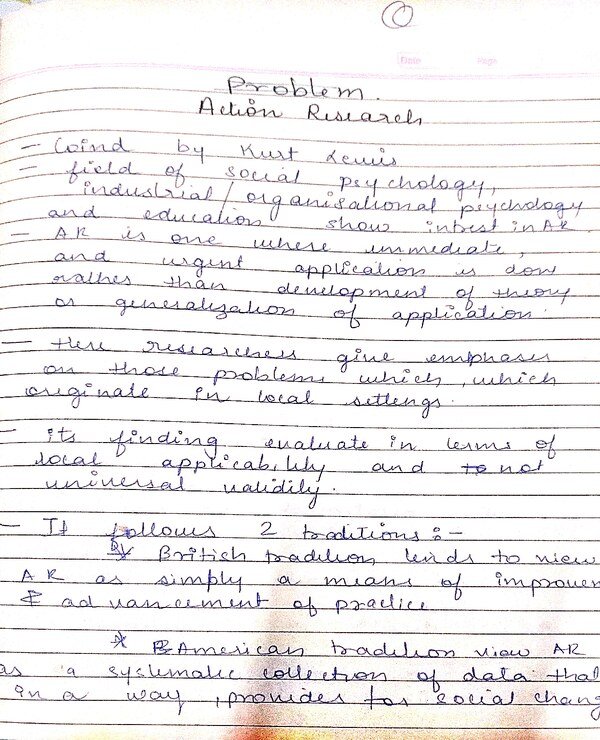 Date Page
Problem.
Action Research
- Coind by Kurt Lewis
- field of social psychology,
industrial/organisational psychology
and education show intrest in AR.
- AR is one where immediate,
and urgent application is done
rather than development of theory
or generalization of application.
- Here researchers give emphases
on those problems which, which
originate in local settings.
- its finding evaluate in terms of
local applicability and to not
universal validity.
- It follows 2 traditions :-
British tradition tends to view
AR as simply a means of improvem
& advancement of practice
* American tradition view AR
as a systematic collection of data that
in a way, provides for social chang